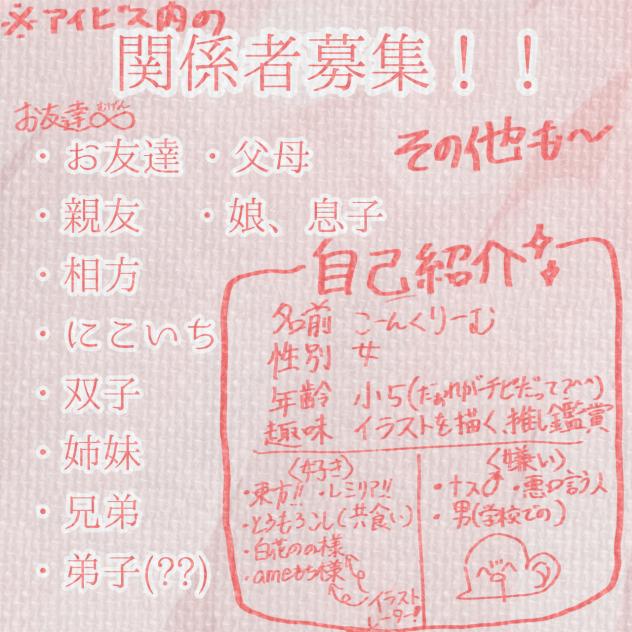 ※アイビス内の
関係者募集！！
お友達∞
むげん
・お友達 ・父母
その他も〜
・親友 ・娘、息子
・相方
・にこいち
・双子
・姉妹
・兄弟
・弟子(??)
自己紹介
名前 こーんくりーむ
性別 女
年齢 小5(だぁれがチビだって?^^)
趣味 イラストを描く、推し鑑賞
〈好き〉
・東方!! ・レミリア!!
・とうもろこし(共食い)
・白花のの様
・ameもち様
イラスト
レーター!
〈嫌い〉
・ナス♂ ・悪口言う人
・男(学校での)